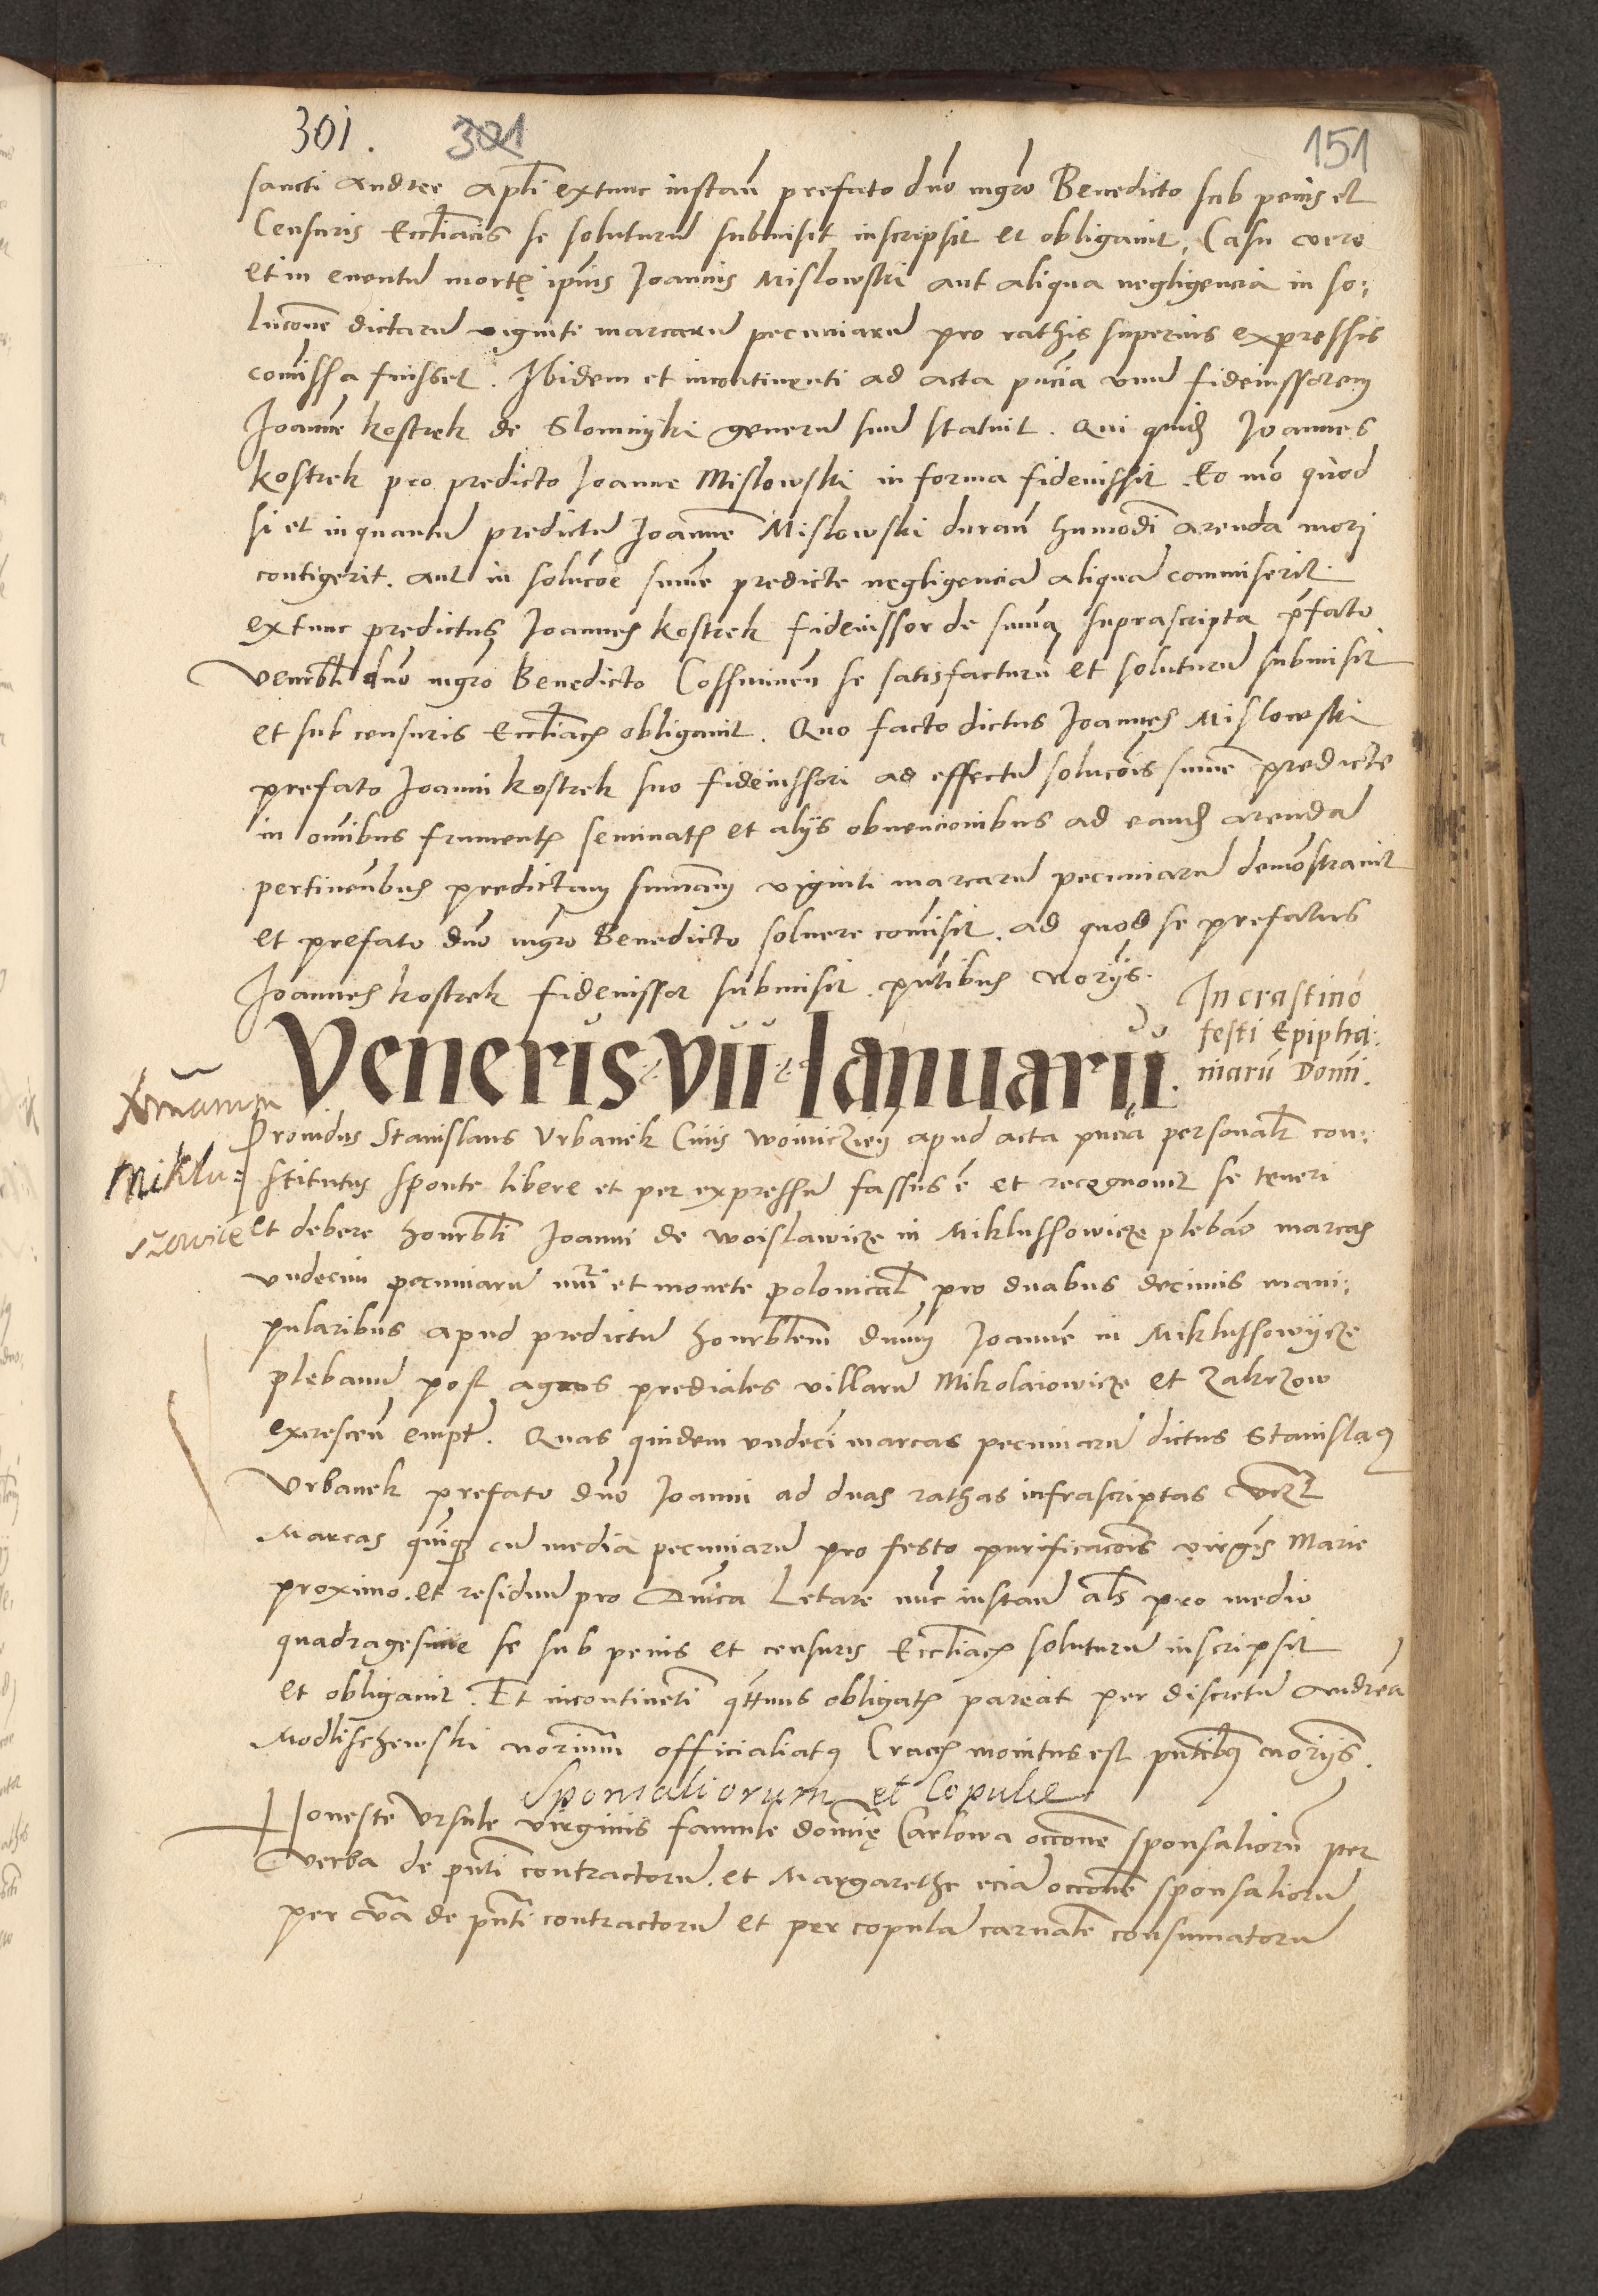 301. 301 151
sancti Andree apli extunc instan̄ prefato dno mgro Benedicto sub penis et
Censuris Eccliacis se soluturu submisit inscripsit et obligauit, Casu vero
et in euentu mortę ipius Joannis Mislowski aut aliqua negligencia in so:
lucone dictaru viginti marcaru pecuniaru pro rathis superius expressis
comissa fuisset. Ibidem et incontinenti ad acta pncia vnu fideiussorem
Joanne kostrek de Slomnyki generu suu statuit. Qui quid Joannes
kostrek pro predicto Joanne Mislowski in forma fideiussit. Eo mo quod
si et inquantu predictu Joanne Mislowski duran̄ humodi arenda mori
contigerit. aut in solucoe sume predicte negligencia aliqua commiserit.
extunc predictus Joannes kostrek fideiussor de suma suprascripta pfato
venebli dno mgro Benedicto Cossminen̄ se satisfacturu et soluturu submisit
et sub censuris Eccliac obligauit. Quo facto dictus Joannes Mislowski
prefato Joanni kostrek suo fideiussori ad effectu solucois sume predicte
in omibus frument seminat et alijs obuencionibus ad eand arenda
pertinenbus predictam sumam viginti marcaru pecuniaru demostrauit
et prefato dno mgro Benedicto soluere comisit. ad quod se prefatus
Joannes kostrek fideiussor submisit. pntibus norijs.
In crastino
festi Epipha:
niaru Domi.
Veneris vii Ianuarii.
Miklu:
szowice
Prouidus Stanislaus Vrbanek Ciuis woiniczien̄ apud acta pncia personalr con:
stitutus sponte libere et per expressu fassus e et recognouit se teneri
et debere honorbli Joanni de woislawicze in Miklussowicze plebano marcas
vndecim pecuniaru nui et monete polonical pro duabus decimis mani:
pularibus apud predictu honorblem dnum Joanne in Miklussowycze
plebanu post agros prediales villaru Mikolaiowicze et Zakrzow
excrescen̄ empt. Quas quidem vndeci marcas pecuniaru dictus Stanislaus
Vrbanek prefato dno Joanni ad duas rathas infrascriptas vczt
Marcas quiq cu media pecuniaru pro festo purificacois virgis Marie
proximo. et residuu pro Dnica Letare nuc instan̄ als pro medio
quadragesime se sub penis et censuris Eccliac soluturu inscripsit
et obligauit. Et incontineti qttenus obligat pareat per discretu Andrea
Modlischewski norium officialiatus Crac monitus est pntibus norijs.
Sponsaliorum et Copule
Honeste Vrsule virginis famule domię Carlowa occone sponsalioru per
verba de pnti contractoru. et Margarethe ecia occone sponsalioru
per vba de pnti contractoru et per copula carnale consumatoru